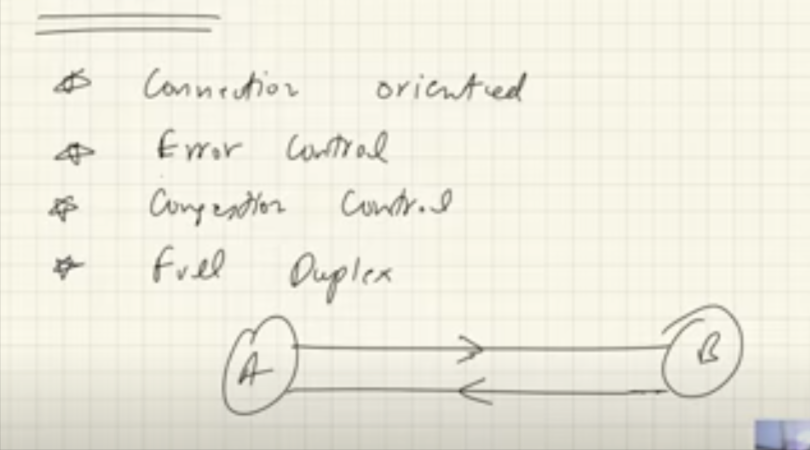 Connection oriented
Error Control
Congestion Control
Full Duplex
A B